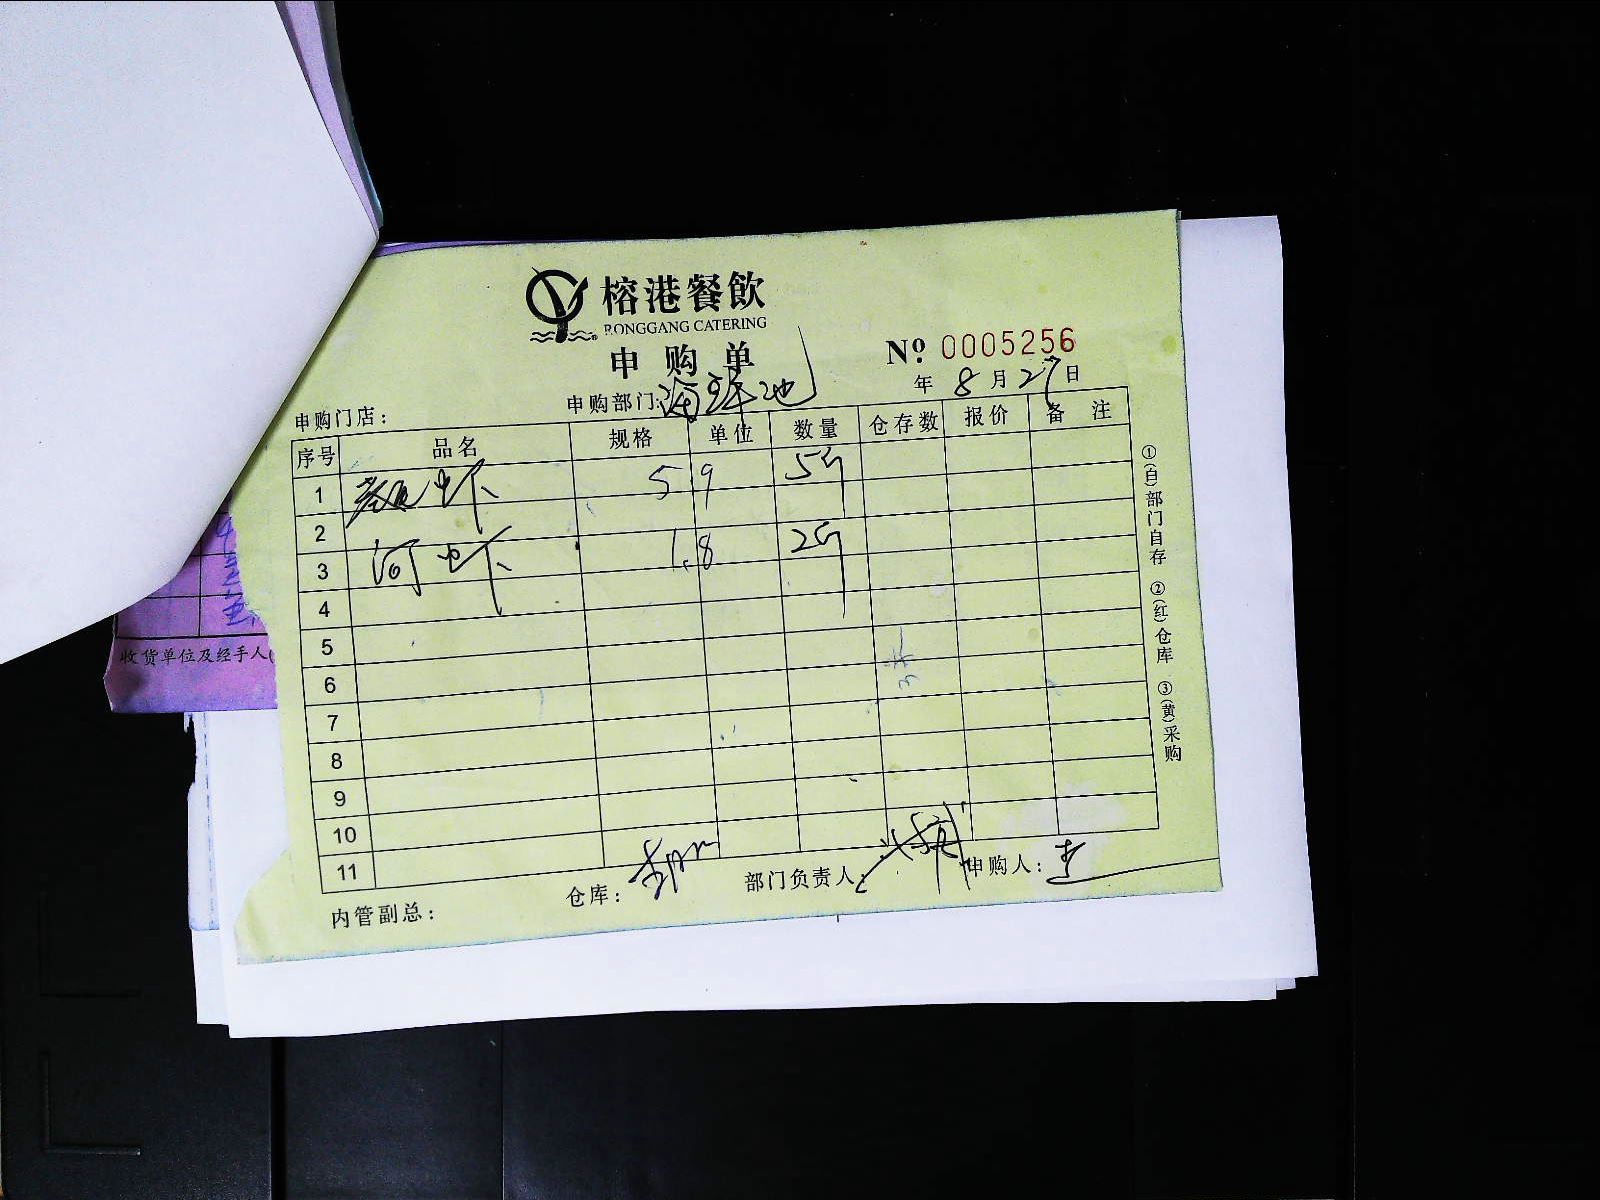 榕港餐飲
RONGGANG CATERING
申购单
Nº 0005256
年 8 月 27 日
申购门店: 申购部门: 海鲜池
序号 品名 规格 单位 数量 仓存数 报价 备注
1 虾 5.9 5斤
2
3 河虾 1.8 2斤
4
5
6
7
8
9
10
11
内管副总: 仓库: 部门负责人: 申购人:
①(白)部门自存 ②(红)仓库 ③(黄)采购
收货单位及经手人(